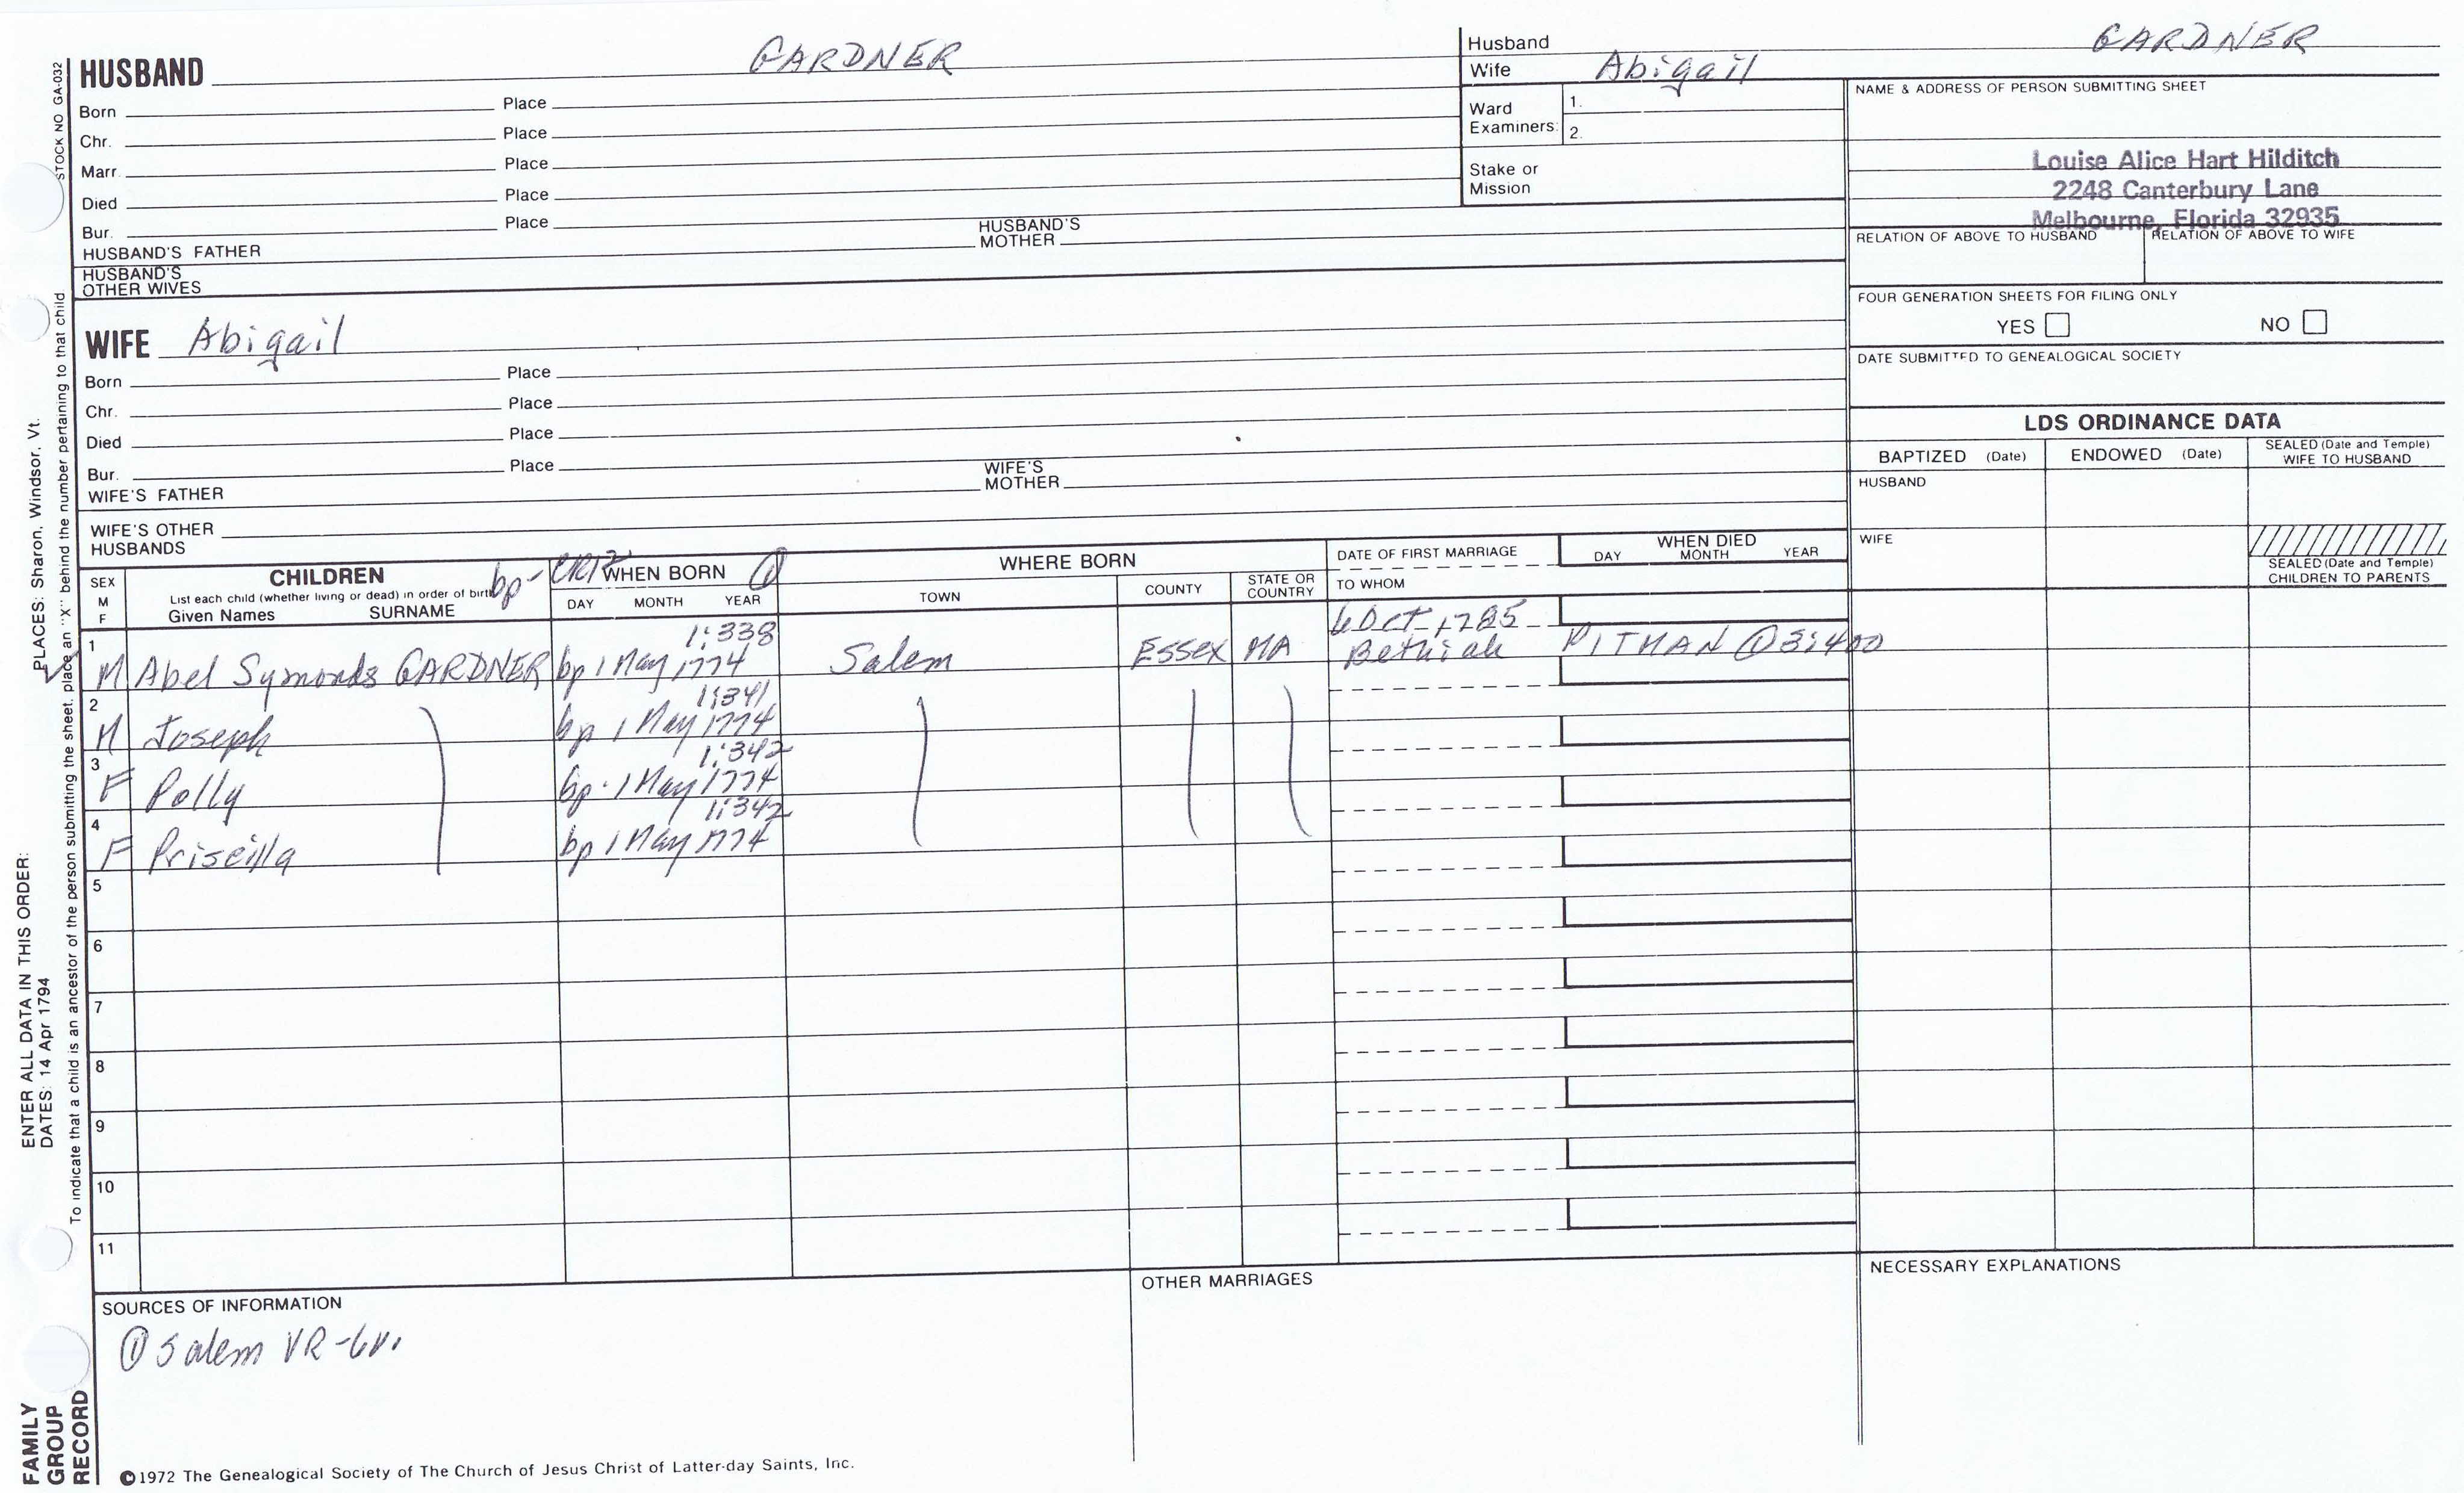 HUSBAND GARDNER
Born Place
Chr. Place
Marr. Place
Died Place
Bur. Place
HUSBAND'S FATHER HUSBAND'S MOTHER
HUSBAND'S OTHER WIVES
Husband GARDNER
Wife Abigail
Ward Examiners: 1.
2.
Stake or Mission
NAME & ADDRESS OF PERSON SUBMITTING SHEET
Louise Alice Hart Hilditch
2248 Canterbury Lane
Melbourne, Florida 32935
RELATION OF ABOVE TO HUSBAND RELATION OF ABOVE TO WIFE
FOUR GENERATION SHEETS FOR FILING ONLY
YES NO
DATE SUBMITTED TO GENEALOGICAL SOCIETY
WIFE Abigail
Born Place
Chr. Place
Died Place
Bur. Place
WIFE'S FATHER WIFE'S MOTHER
WIFE'S OTHER HUSBANDS
LDS ORDINANCE DATA
BAPTIZED (Date) ENDOWED (Date) SEALED (Date and Temple) WIFE TO HUSBAND
HUSBAND
WIFE
SEALED (Date and Temple) CHILDREN TO PARENTS
SEX M F
CHILDREN
List each child (whether living or dead) in order of birth
Given Names SURNAME
bp- CR12 WHEN BORN ①
DAY MONTH YEAR
WHERE BORN
TOWN COUNTY STATE OR COUNTRY
DATE OF FIRST MARRIAGE
TO WHOM
WHEN DIED
DAY MONTH YEAR
1 1:338 6 Oct 1785
M Abel Symonds GARDNER bp 1 May 1774 Salem Essex MA Bethiah PITMAN ① 3:400
2 1:341
M Joseph bp 1 May 1774
3 1:342
F Polly bp. 1 May 1774
4 1:342
F Priscilla bp 1 May 1774
5
6
7
8
9
10
11
SOURCES OF INFORMATION
① Salem VR-6v.
OTHER MARRIAGES
NECESSARY EXPLANATIONS
©1972 The Genealogical Society of The Church of Jesus Christ of Latter-day Saints, Inc.
STOCK NO GA-032
To indicate that a child is an ancestor of the person submitting the sheet, place an "X" behind the number pertaining to that child
PLACES: Sharon, Windsor, Vt.
ENTER ALL DATA IN THIS ORDER:
DATES: 14 Apr 1794
FAMILY
GROUP
RECORD